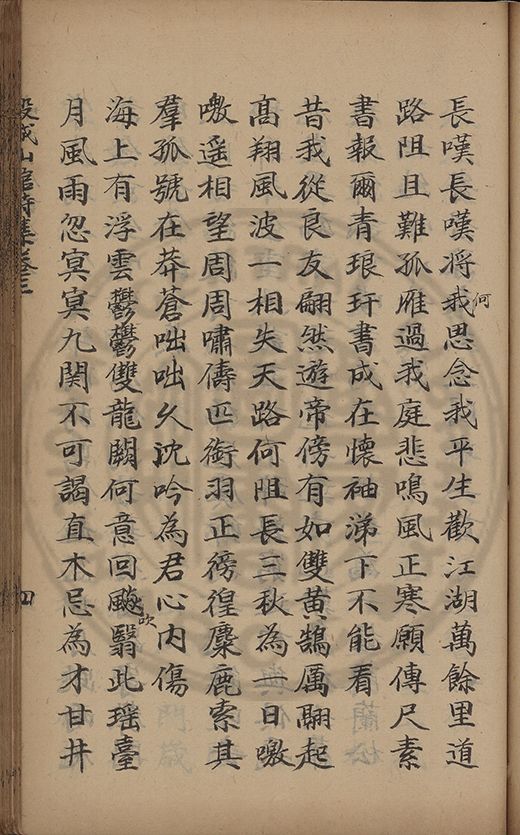 長嘆長嘆將我何思念我平生歡江湖萬餘里道
路阻且難孤雁過我庭悲鳴風正寒願傳尺素
書報爾青琅玕書成在懷袖涕下不能看
昔我從良友翩然遊帝傍有如雙黃鵠厲翮起
高翔風波一相失天路何阻長三秋為一日嗷
嗷遥相望周周嘯儔匹銜羽正徬徨麋鹿索其
羣孤號在莽蒼咄咄久沈吟為君心内傷
海上有浮雲鬱鬱雙龍闕何意回飈吹翳此瑶臺
月風雨忽寞寞九関不可謁直木忌為才甘井
山館詩集卷三
四